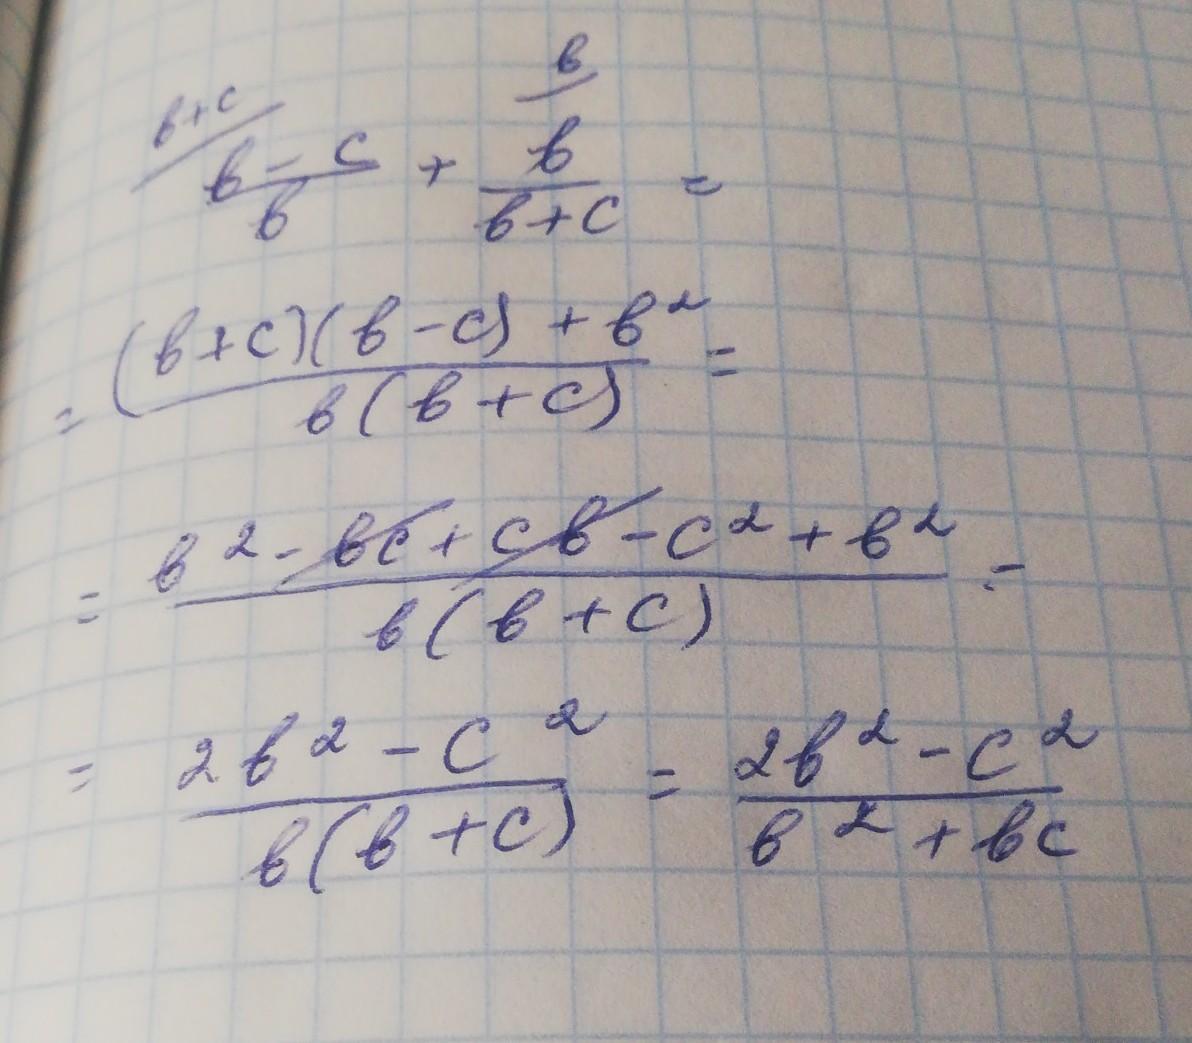 b+c/ (b-c)/b + b/ b/(b+c) =
= ((b+c)(b-c)+b²)/(b(b+c)) =
= (b²-bc+cb-c²+b²)/(b(b+c)) =
= (2b²-c²)/(b(b+c)) = (2b²-c²)/(b²+bc)